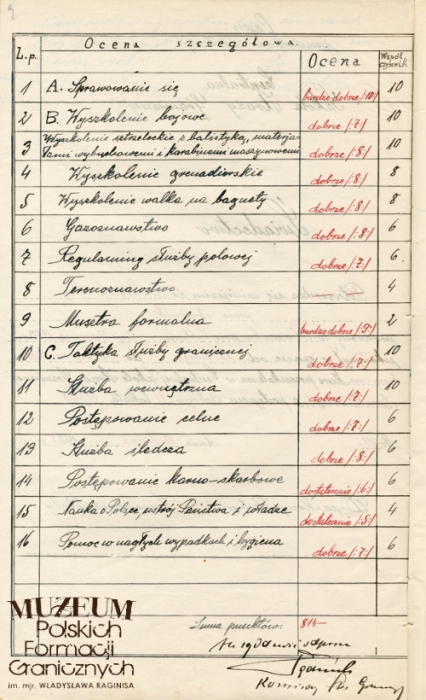 9
L.p. Ocena szczegółowa Ocena Współczynnik
1 A. Sprawowanie się bardzo dobrze /:10:/ 10
2 B. Wyszkolenie bojowe dobrze /:7:/ 10
3 Wyszkolenie strzeleckie z balistyką, materja-
łami wybuchowemi i karabinami maszynowemi dobrze /:8:/ 10
4 Wyszkolenie grenadierskie dobrze /:8:/ 8
5 Wyszkolenie walka na bagnety dobrze /:8:/ 8
6 Gazoznawstwo dobrze /:8:/ 6
7 Regulaming służby polowej dobrze /:7:/ 6
8 Terenoznawstwo 4
9 Musztra formalna bardzo dobrze /:9:/ 2
10 C. Taktyka służby granicznej dobrze /:7:/ 10
11 Służba wewnętrzna dobrze /:7:/ 10
12 Postępowanie celne dobrze /:7:/ 6
13 Służba śledcza dobrze /:8:/ 6
14 Postępowanie karno-skarbowe dostatecznie /:6:/ 6
15 Nauka o Polsce, ustrój Państwa i władze dostatecznie /:5:/ 4
16 Pomoc w nagłych wypadkach i hygiena dobrze /:7:/ 6
Suma punktów: 814-
MUZEUM
Polskich
Formacji
Granicznych
im. mjr. WŁADYSŁAWA RAGINISA